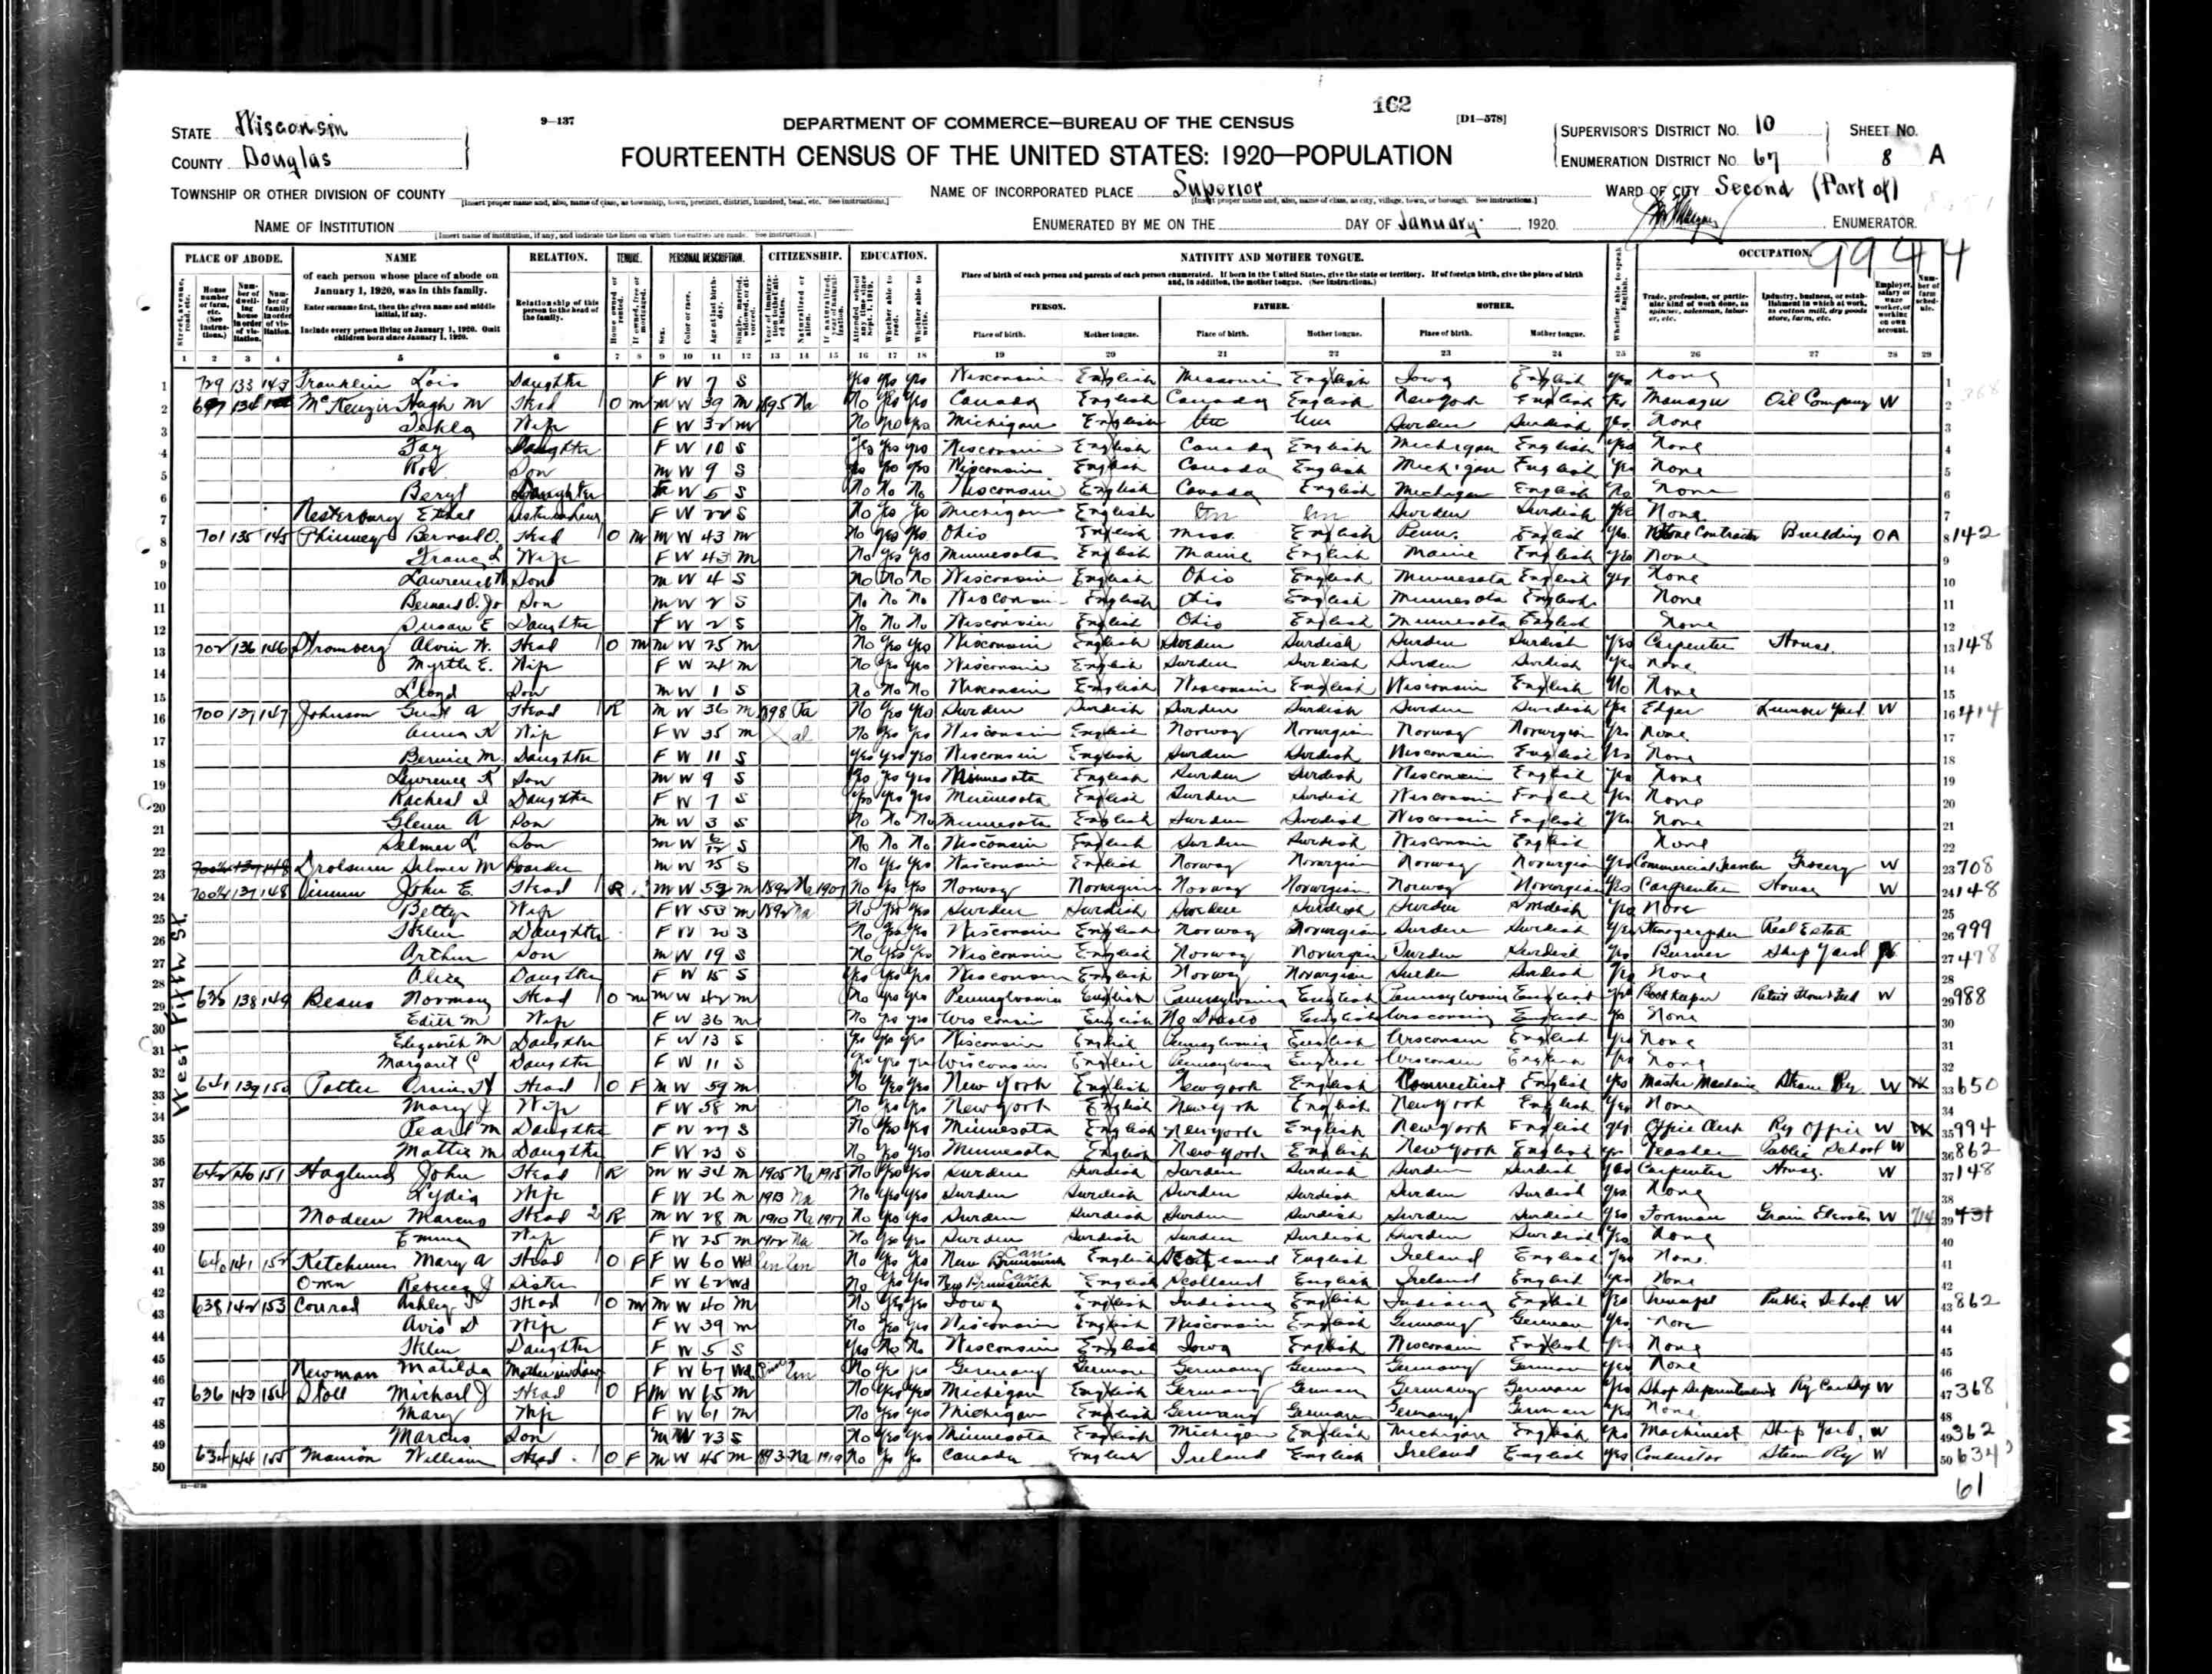 162
STATE Wisconsin
9—137
DEPARTMENT OF COMMERCE—BUREAU OF THE CENSUS
[D1—578]
SUPERVISOR'S DISTRICT No. 10
SHEET No.
COUNTY Douglas
FOURTEENTH CENSUS OF THE UNITED STATES: 1920—POPULATION
ENUMERATION DISTRICT No. 67
8 A
TOWNSHIP OR OTHER DIVISION OF COUNTY
NAME OF INCORPORATED PLACE Superior
WARD OF CITY Second (Part of)
NAME OF INSTITUTION
ENUMERATED BY ME ON THE DAY OF January 1920. ENUMERATOR.
9944
PLACE OF ABODE. NAME RELATION. TENURE. PERSONAL DESCRIPTION. CITIZENSHIP. EDUCATION. NATIVITY AND MOTHER TONGUE. OCCUPATION.
of each person whose place of abode on January 1, 1920, was in this family.
Enter surname first, then the given name and middle initial, if any.
Include every person living on January 1, 1920. Omit children born since January 1, 1920.
Relationship of this person to the head of the family.
Place of birth of each person and parents of each person enumerated. If born in the United States, give the state or territory. If of foreign birth, give the place of birth and, in addition, the mother tongue. (See instructions.)
PERSON. FATHER. MOTHER.
Place of birth. Mother tongue. Place of birth. Mother tongue. Place of birth. Mother tongue.
1 2 3 4 5 6 7 8 9 10 11 12 13 14 15 16 17 18 19 20 21 22 23 24 25 26 27 28 29
West Fifth St.
1 729 133 143 Franklin Lois Daughter F W 7 S Yes Yes Yes Wisconsin English Missouri English Iowa English Yes None
2 134 McKenzie Hugh M Head O M M W 39 M 1895 Na No Yes Yes Canada English Canada English New York English Yes Manager Oil Company W
3 Wife F W 32 M No Yes Yes Michigan English Un Un Sweden Swedish Yes None
4 Fay Daughter F W 10 S Yes Yes Yes Wisconsin English Canada English Michigan English Yes None
5 Son M W 9 S Yes Yes Yes Wisconsin English Canada English Michigan English Yes None
6 Beryl Daughter F W 5 S No No No Wisconsin English Canada English Michigan English None
7 Ethel Sister in Law F W 22 S No Yes Yes Michigan English Un Un Sweden Swedish Yes None
8 701 135 145 Phinney Bernard O. Head O M M W 43 M No Yes Yes Ohio English Mass. English Penn. English Yes Contractor Building OA 142
9 Wife F W 43 M No Yes Yes Minnesota English Maine English Maine English Yes None
10 Lawrence Son M W 4 S No No No Wisconsin English Ohio English Minnesota English Yes None
11 Bernard O. Jr Son M W 2 S No No No Wisconsin English Ohio English Minnesota English None
12 Susan E Daughter F W 2 S No No No Wisconsin English Ohio English Minnesota English None
13 702 136 146 Stromberg Alvin W. Head O M M W 25 M No Yes Yes Wisconsin English Sweden Swedish Sweden Swedish Yes Carpenter House 148
14 Myrtle E. Wife F W 24 M No Yes Yes Wisconsin English Sweden Swedish Sweden Swedish Yes None
15 Lloyd Son M W 1 S No No No Wisconsin English Wisconsin English Wisconsin English No None
16 700 137 147 Johnson Gust A Head R M W 36 M 1898 Pa No Yes Yes Sweden Swedish Sweden Swedish Sweden Swedish Yes Edger Lumber Yard W 414
17 Anna K Wife F W 35 M al No Yes Yes Wisconsin English Norway Norwegian Norway Norwegian Yes None
18 Bernice M. Daughter F W 11 S Yes Yes Yes Wisconsin English Sweden Swedish Wisconsin English Yes None
19 Lawrence R Son M W 9 S Yes Yes Minnesota English Sweden Swedish Wisconsin English Yes None
20 Racheal I Daughter F W 7 S Yes Yes Yes Minnesota English Sweden Swedish Wisconsin English Yes None
21 Glenn A Son M W 3 S No No No Minnesota English Sweden Swedish Wisconsin English Yes None
22 Selmer L. Son M W S No No No Wisconsin English Sweden Swedish Wisconsin English None
23 Selmer M Boarder M W 25 S No Yes Yes Wisconsin English Norway Norwegian Norway Norwegian Yes Commercial Traveler Grocery W 708
24 700½ 137 148 John E. Head R M W 52 M 1892 Na 1907 No Yes Yes Norway Norwegian Norway Norwegian Norway Norwegian Yes Carpenter House W 148
25 Betty Wife F W 53 M 1892 Na No Yes Yes Sweden Swedish Sweden Swedish Sweden Swedish Yes None
26 Helen Daughter F W 20 S No Yes Yes Wisconsin English Norway Norwegian Sweden Swedish Yes Stenographer Real Estate 999
27 Arthur Son M W 19 S No Yes Yes Wisconsin English Norway Norwegian Sweden Swedish Yes Burner Ship Yard 478
28 Alice Daughter F W 15 S Yes Yes Yes Wisconsin English Norway Norwegian Sweden Swedish Yes None
29 138 149 Beans Norman Head O M M W 42 M No Yes Yes Pennsylvania English Pennsylvania English Pennsylvania English Yes Bookkeeper Retail Flour & Feed W 988
30 Edith M Wife F W 36 M No Yes Yes Wisconsin English English Wisconsin English Yes None
31 Elizabeth M Daughter F W 13 S Yes Yes Yes Wisconsin English Pennsylvania English Wisconsin English Yes None
32 Margaret C Daughter F W 11 S Yes Yes Yes Wisconsin English Pennsylvania English Wisconsin English Yes None
33 641 139 150 Potter Head O F M W 59 M No Yes Yes New York English New York English Connecticut English Yes Master Mechanic Steam Ry W 650
34 Mary J Wife F W 58 M No Yes Yes New York English New York English New York English Yes None
35 Pearl M Daughter F W 27 S No Yes Yes Minnesota English New York English New York English Yes Office Clerk Ry Office W 994
36 Mattie M Daughter F W 23 S No Yes Yes Minnesota English New York English New York English Yes Teacher Public School W 862
37 642 140 151 Haglund John Head R M W 34 M 1905 Na 1915 No Yes Yes Sweden Swedish Sweden Swedish Sweden Swedish Yes Carpenter House W 148
38 Lydia Wife F W 26 M 1913 Na No Yes Yes Sweden Swedish Sweden Swedish Sweden Swedish Yes None
39 Modeen Marcus Head 2 R M W 28 M 1910 Na 1917 No Yes Yes Sweden Swedish Sweden Swedish Sweden Swedish Yes Forman Grain Elevator W 714 431
40 Emma Wife F W 25 M 1902 Na No Yes Yes Sweden Swedish Sweden Swedish Sweden Swedish Yes None
41 640 141 152 Ketchum Mary A Head O F F W 60 Wd Un Un No Yes Yes New Brunswick Can English Scotland English Ireland English Yes None
42 Rebecca J Sister F W 62 Wd No Yes Yes New Brunswick Can English Scotland English Ireland English Yes None
43 638 142 153 Conrad Ashley T Head O M M W 40 M No Yes Yes Iowa English Indiana English Indiana English Yes Principal Public School W 862
44 Avis D Wife F W 39 M No Yes Yes Wisconsin English Wisconsin English Germany German Yes None
45 Helen Daughter F W 5 S Yes No No Wisconsin English Iowa English Wisconsin English Yes None
46 Newman Matilda Mother in Law F W 67 Wd Un Un No Yes Yes Germany German Germany German Germany German Yes None
47 636 143 154 Stoll Michael J Head O F M W 65 M No Yes Yes Michigan English Germany German Germany German Yes Shop Superintendent Ry Car Shop W 368
48 Mary Wife F W 61 M No Yes Yes Michigan English Germany German Germany German Yes None
49 Marcus Son M W 23 S No Yes Yes Minnesota English Michigan English Michigan English Yes Machinist Ship Yard W 362
50 634 144 155 Manion William Head O F M W 45 M 1893 Na 1919 No Yes Yes Canada English Ireland English Ireland English Yes Conductor Steam Ry W 634
61
FILM